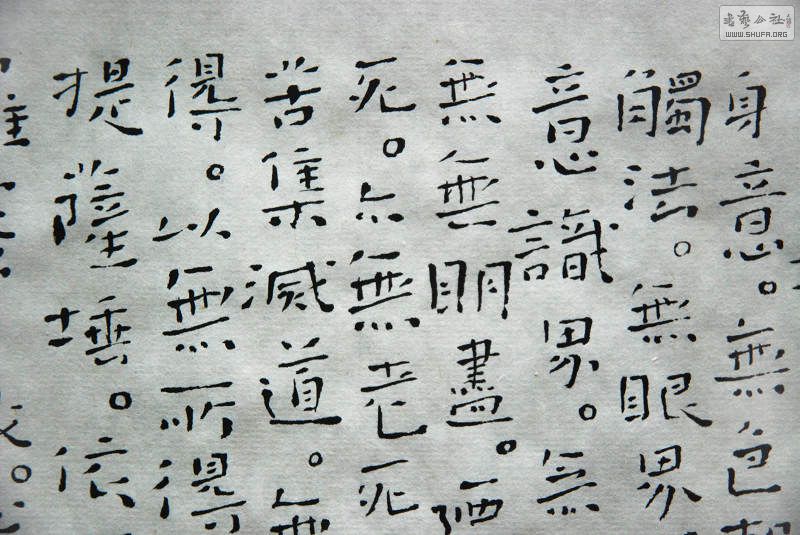 身意。無色
觸法。無眼界
意識界。無
無無明盡。
死。亦無老死
苦集滅道。無
得。以無所得
提薩埵。依
書藝公社
WWW.SHUFA.ORG